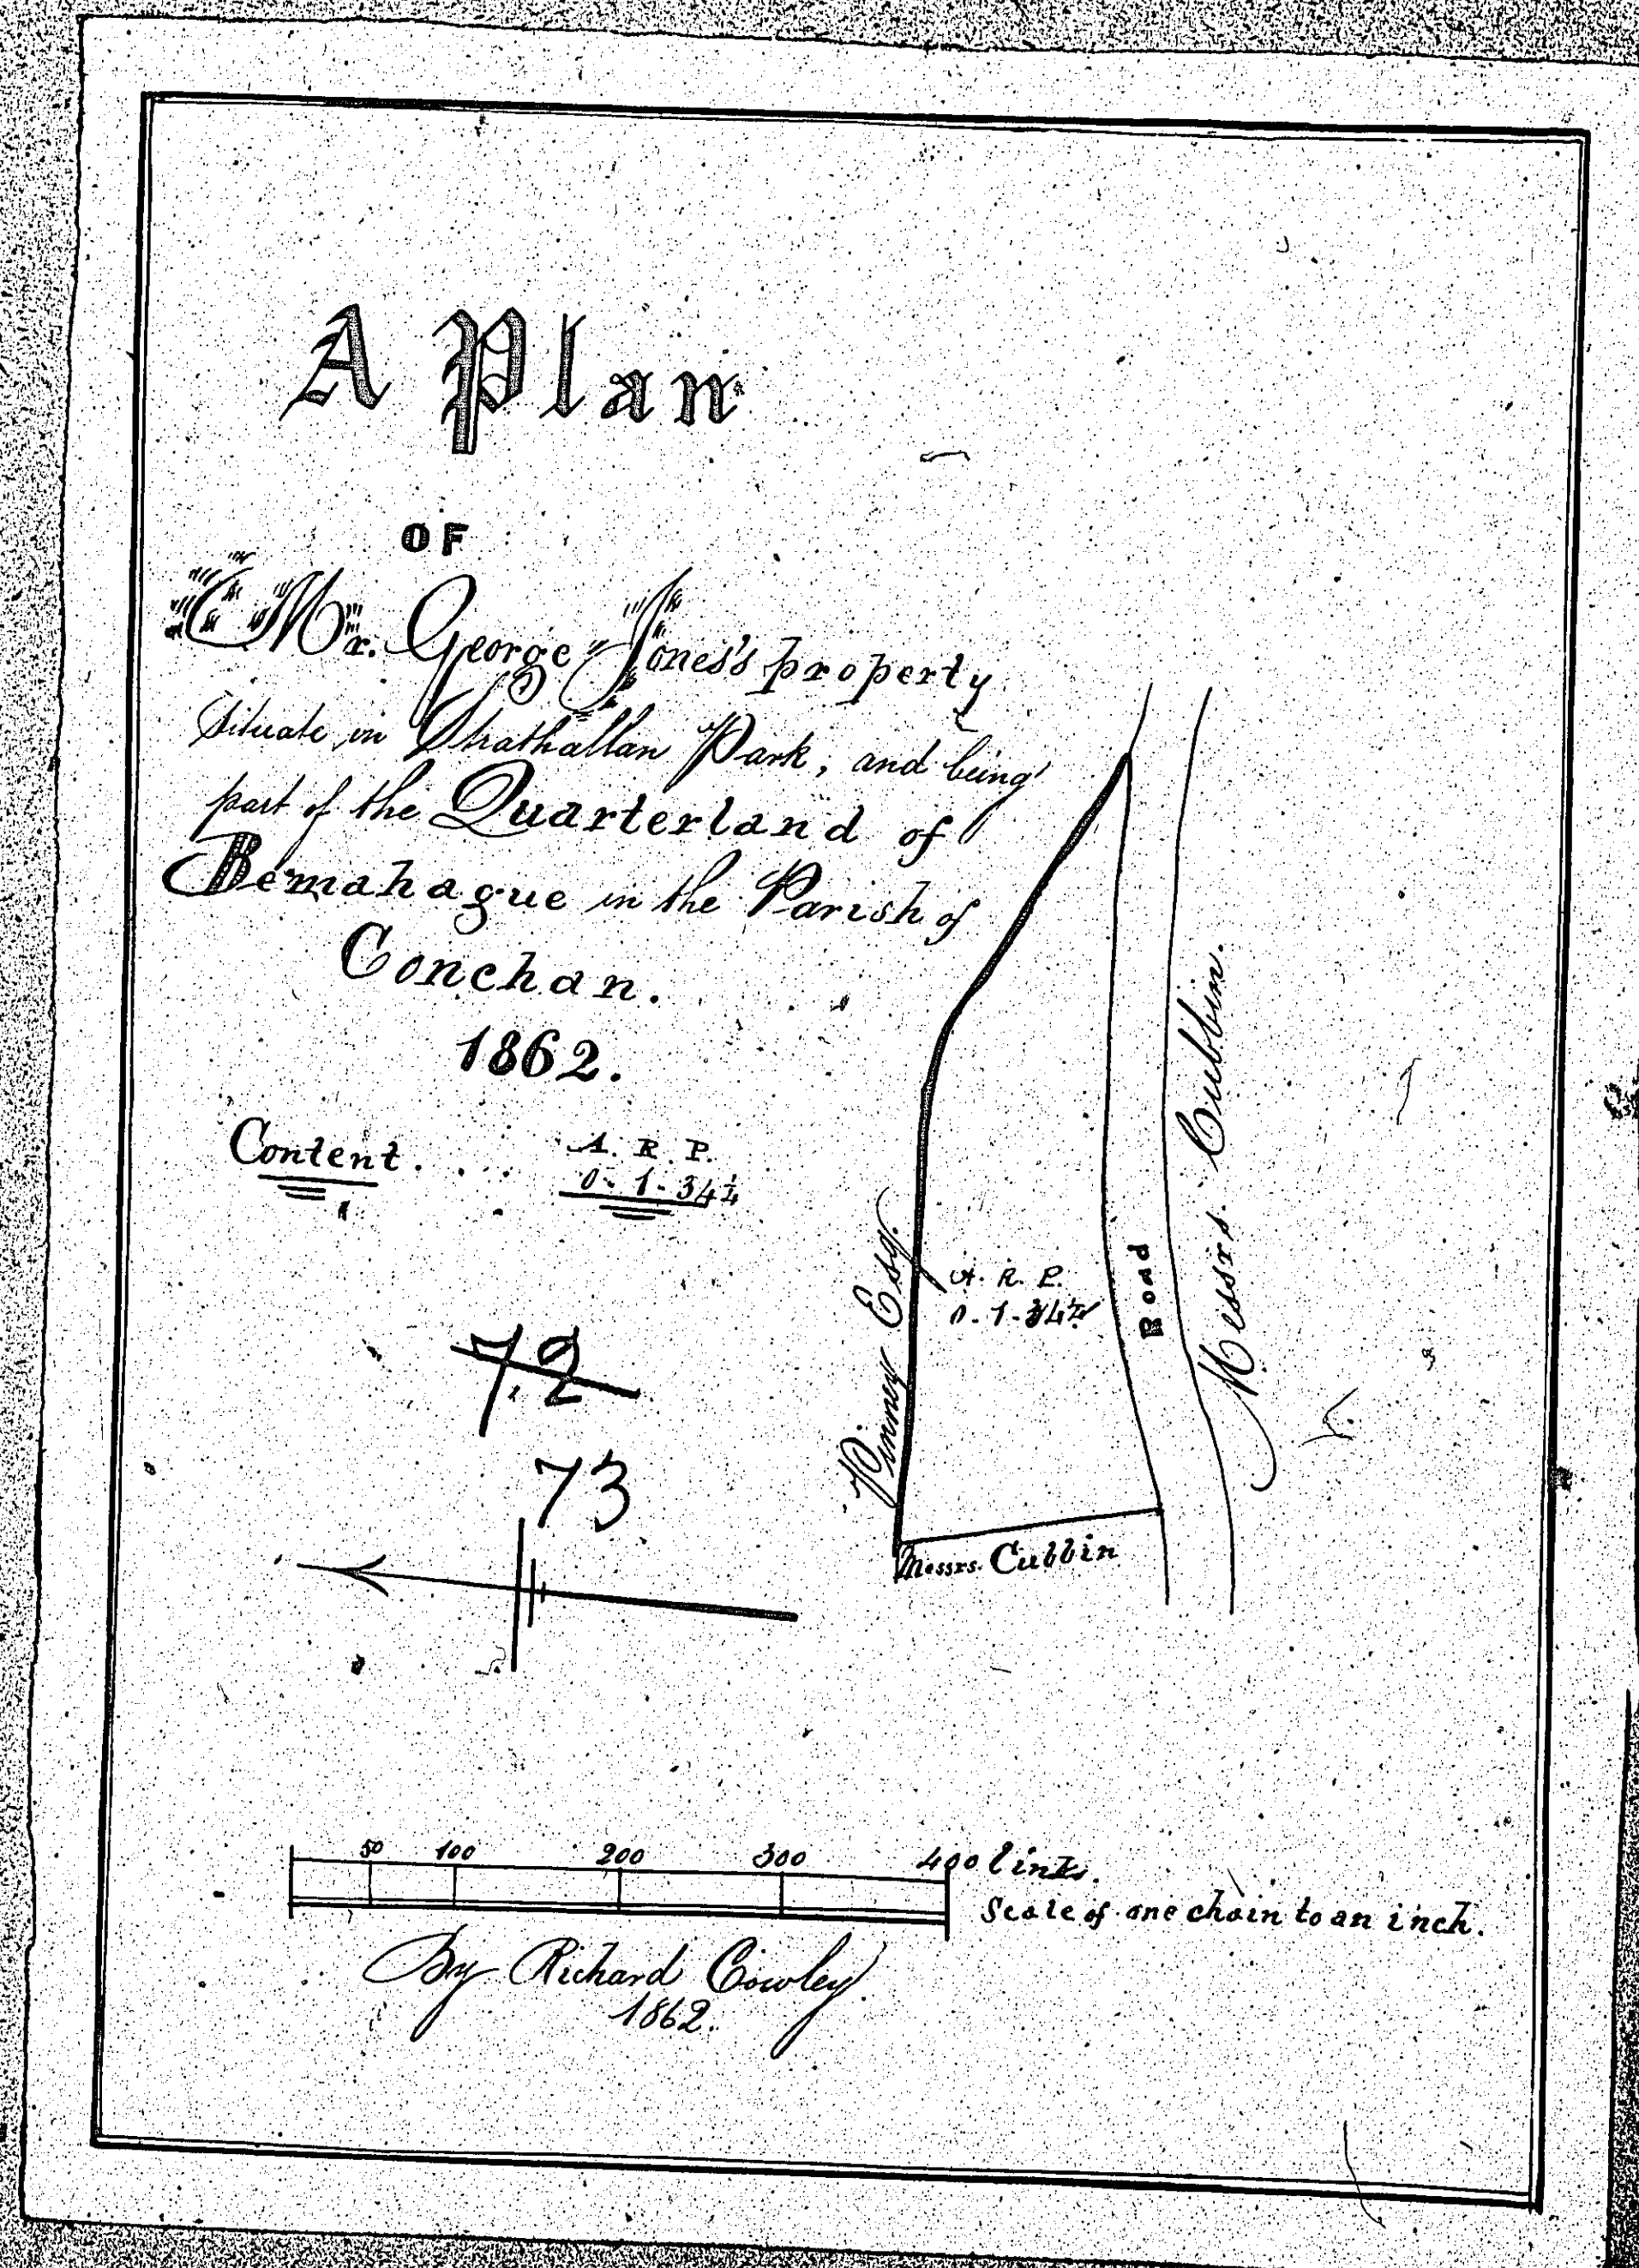 A Plan
OF
Mr. George Jones's property
Situate in Strathallan Park, and being
part of the Quarterland of
Bemahague in the Parish of
Conchan.
1862.
Content. . . . A. R. P.
0 - 1 - 34¼
72
73
Pinney Esq.
A. R. P.
0 - 1 - 34¼
Road
Messrs. Cubbin.
Messrs. Cubbin
50 100 200 300 400 links.
Scale of one chain to an inch.
By Richard Cowley.
1862.